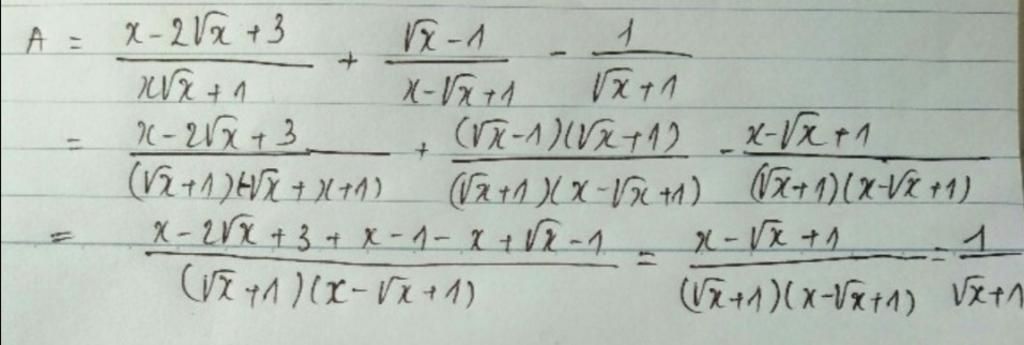 A = (x - 2√x + 3)/(x√x + 1) + (√x - 1)/(x - √x + 1) - 1/(√x + 1)
= (x - 2√x + 3)/((√x + 1)(-√x + x + 1)) + ((√x - 1)(√x + 1))/((√x + 1)(x - √x + 1)) - (x - √x + 1)/((√x + 1)(x - √x + 1))
= (x - 2√x + 3 + x - 1 - x + √x - 1)/((√x + 1)(x - √x + 1)) = (x - √x + 1)/((√x + 1)(x - √x + 1)) = 1/(√x + 1)